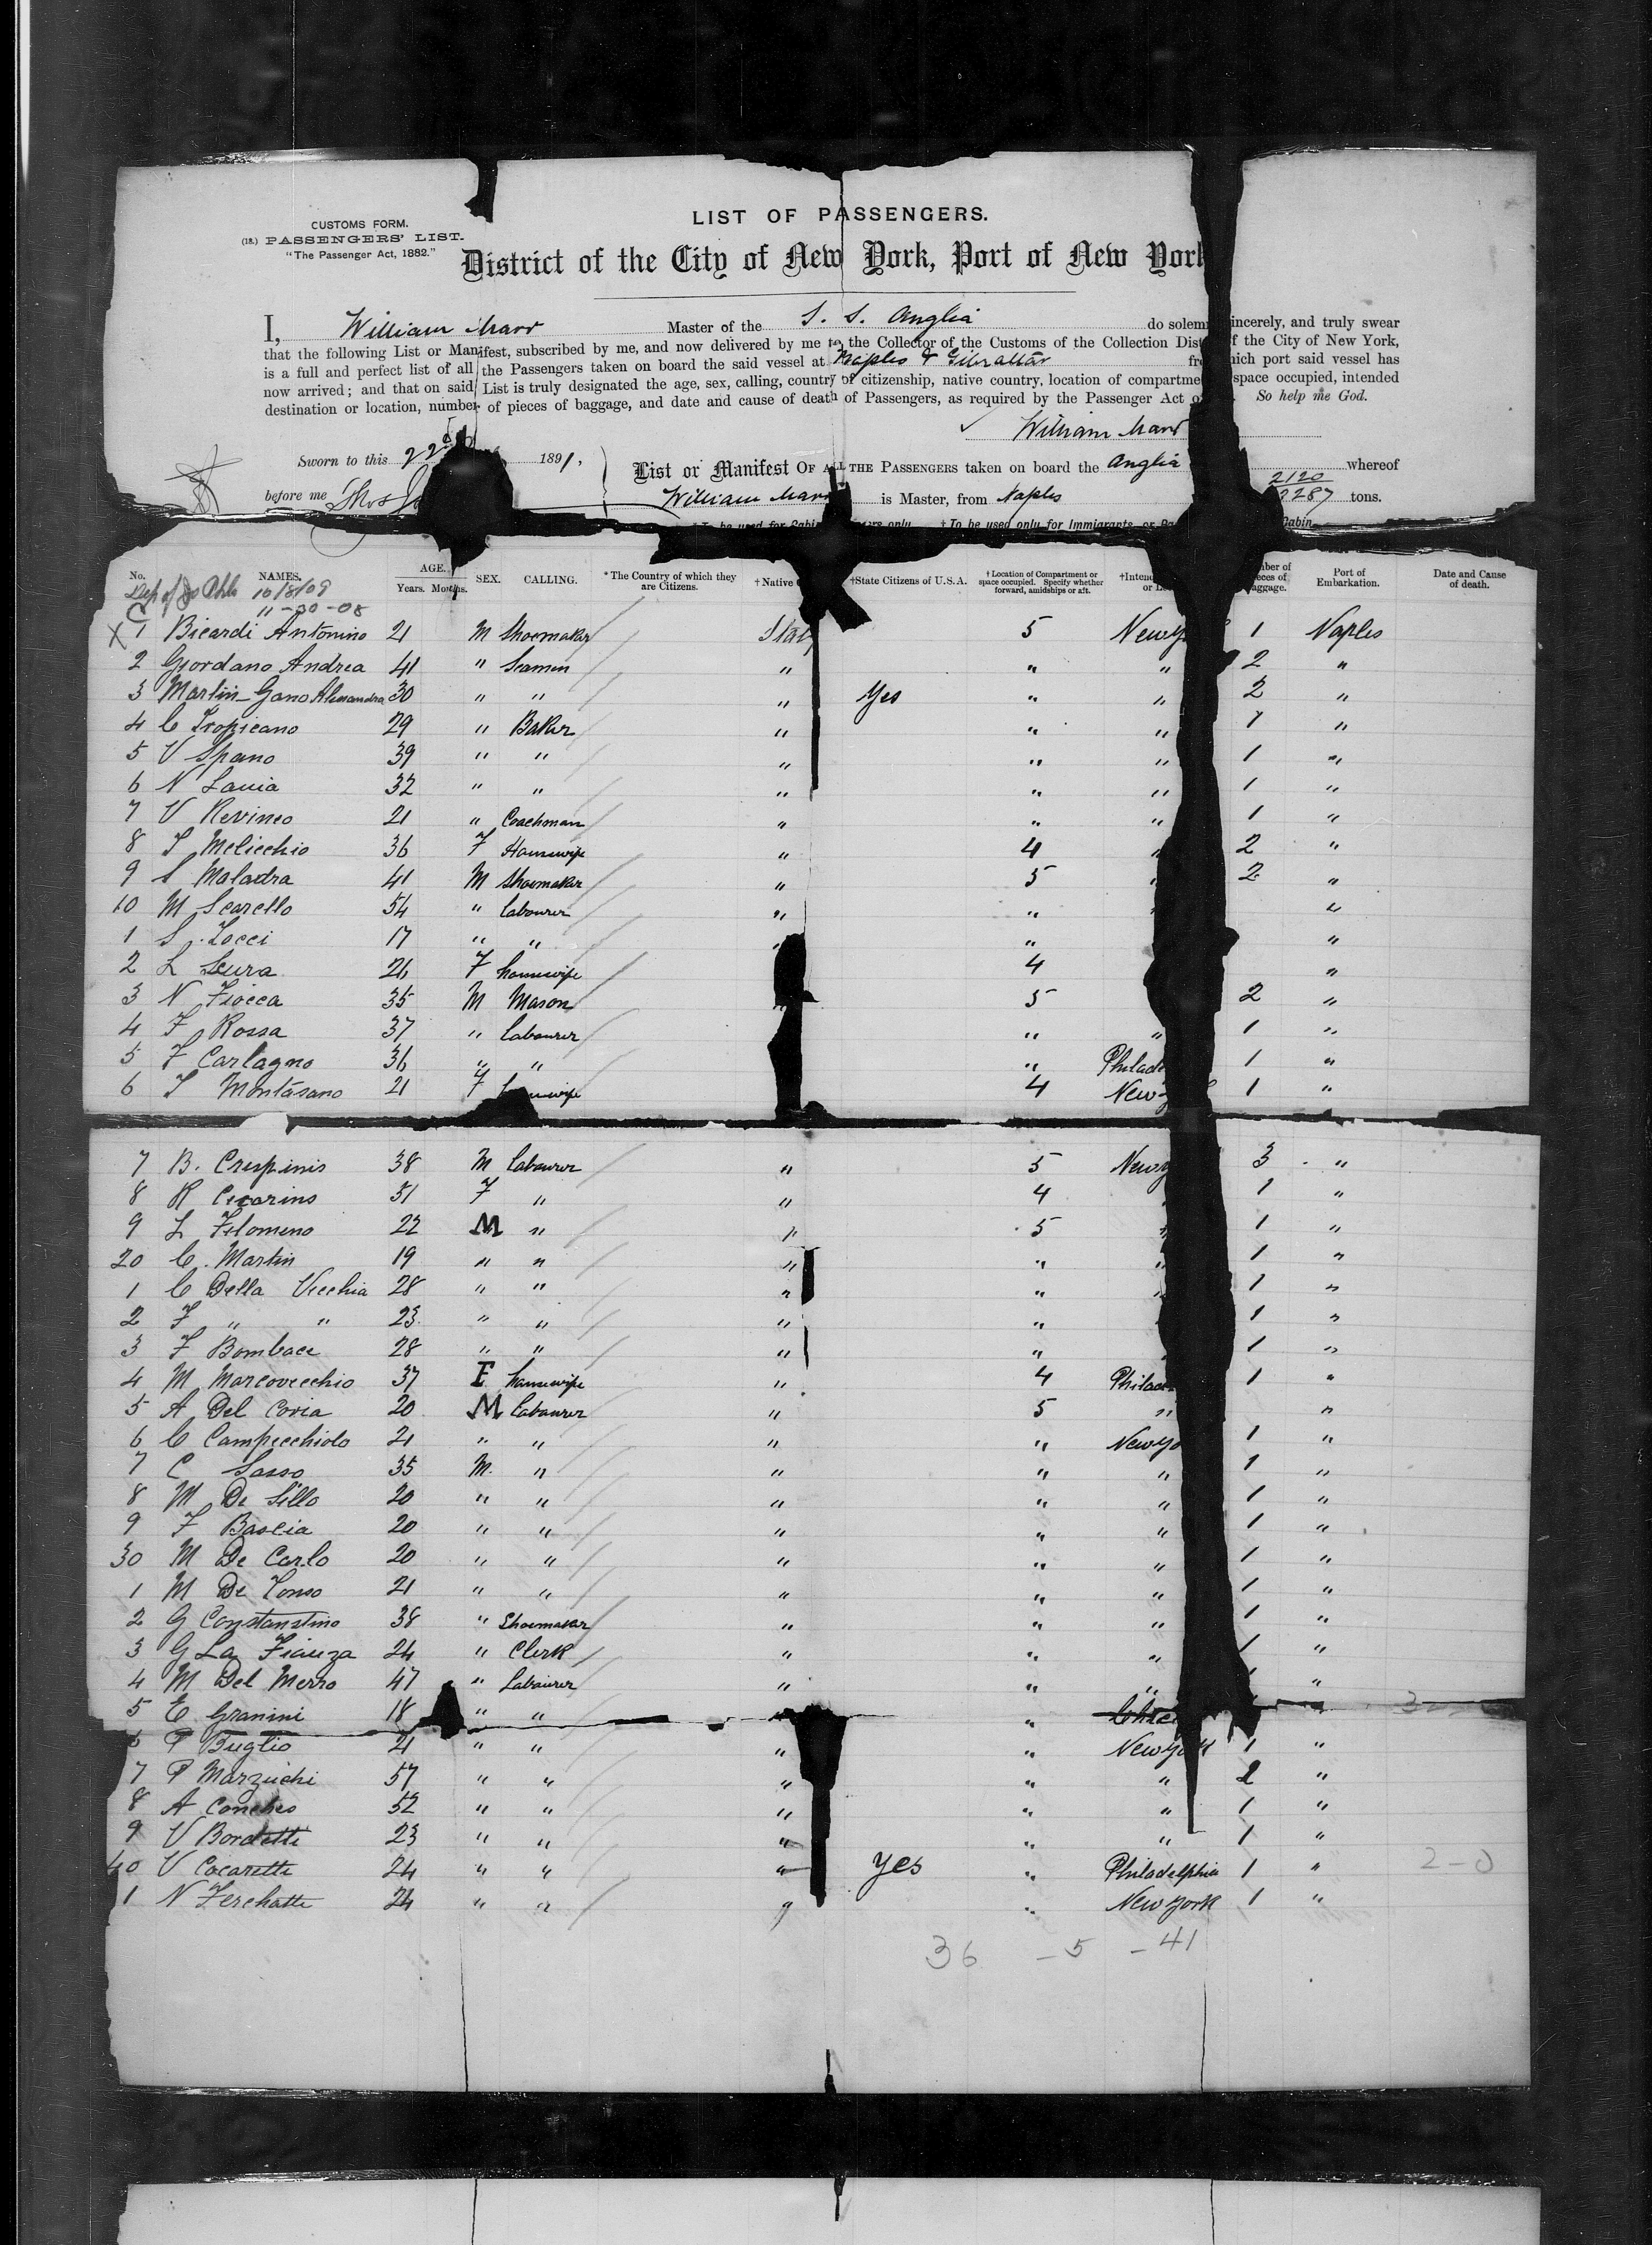 LIST OF PASSENGERS.
CUSTOMS FORM.
(18.) PASSENGERS' LIST.
"The Passenger Act, 1882."
District of the City of New York, Port of New York
I, William Marr Master of the S. S. Anglia do solem incerely, and truly swear
that the following List or Manifest, subscribed by me, and now delivered by me to the Collector of the Customs of the Collection Dist f the City of New York,
is a full and perfect list of all the Passengers taken on board the said vessel at Naples & Gibraltar fro hich port said vessel has
now arrived; and that on said List is truly designated the age, sex, calling, country of citizenship, native country, location of compartme space occupied, intended
destination or location, number of pieces of baggage, and date and cause of death of Passengers, as required by the Passenger Act o So help me God.
William Marr
Sworn to this 22d 1891,
before me Thos
List or Manifest OF ALL THE PASSENGERS taken on board the Anglia whereof
William Marr is Master, from Naples 2120 2287 tons.
† To be used only for Immigrants
No. NAMES. AGE. Years. Months. SEX. CALLING. * The Country of which they are Citizens. † Native † State Citizens of U.S.A. † Location of Compartment or space occupied. Specify whether forward, amidships or aft. † Inten or L ber of eces of aggage. Port of Embarkation. Date and Cause of death.
Dep of 10/8/09
11-30-08
X 1 Bicardi Antonino 21 M Shoemaker Italy 5 New Y 1 Naples
2 Giordano Andrea 41 " Seamen " " " 2 "
3 Martin-Gano Alessandra 30 " " " Yes " " 2 "
4 C Tropicano 29 " Baker " " " 1 "
5 V Spano 39 " " " " " 1 "
6 N Lauia 32 " " " " " 1 "
7 V Revineo 21 " Coachman " " " 1 "
8 T Melicchio 36 F Housewife " 4 " 2 "
9 S Maladra 41 M Shoemaker " 5 " 2 "
10 M Scarello 54 " Labourer " " "
1 S Zocci 17 " " " " "
2 L Scura 26 F housewife 4 "
3 N Fiocca 35 M Mason " 5 2 "
4 F Rossa 37 " Labourer " " 1 "
5 F Carlagno 36 " " " Philade 1 "
6 T Montásano 21 F wife 4 New Y 1 "
7 B. Crispinis 38 M Labourer " 5 New Y 3 "
8 R Cicarins 31 F " " 4 1 "
9 L Filomeno 22 M " " 5 " 1 "
20 C. Martin 19 " " " " " 1 "
1 C Della Vecchia 28 " " " " " 1 "
2 F " " 23 " " " " 1 "
3 F Bombace 28 " " " " 1 "
4 M Marcovecchio 37 F housewife " 4 Philad 1 "
5 A Del Coria 20 M Labourer " 5 " "
6 C Campecchiolo 21 " " " " New Yo 1 "
7 C Sasso 35 M. " " " " 1 "
8 M De Lillo 20 " " " " " 1 "
9 F Bascia 20 " " " " " 1 "
30 M De Carlo 20 " " " " " 1 "
1 M De Tonso 21 " " " " " 1 "
2 G Constanstino 38 " Shoemaker " " " 1 "
3 G La Fianza 24 " Clerk " " " 1 "
4 M Del Merro 47 " Labourer " " " "
5 E Granini 18 " " " "
6 P Buglio 21 " " " " New York 1 "
7 P Marzuchi 57 " " " " " 2 "
8 A Conches 52 " " " " " 1 "
9 V Bordetti 23 " " " " " 1 "
40 V Cocaretti 24 " " " Yes " Philadelphia 1 " 2-0
1 N Ferchatti 24 " " " " New York 1 "
36 - 5 - 41